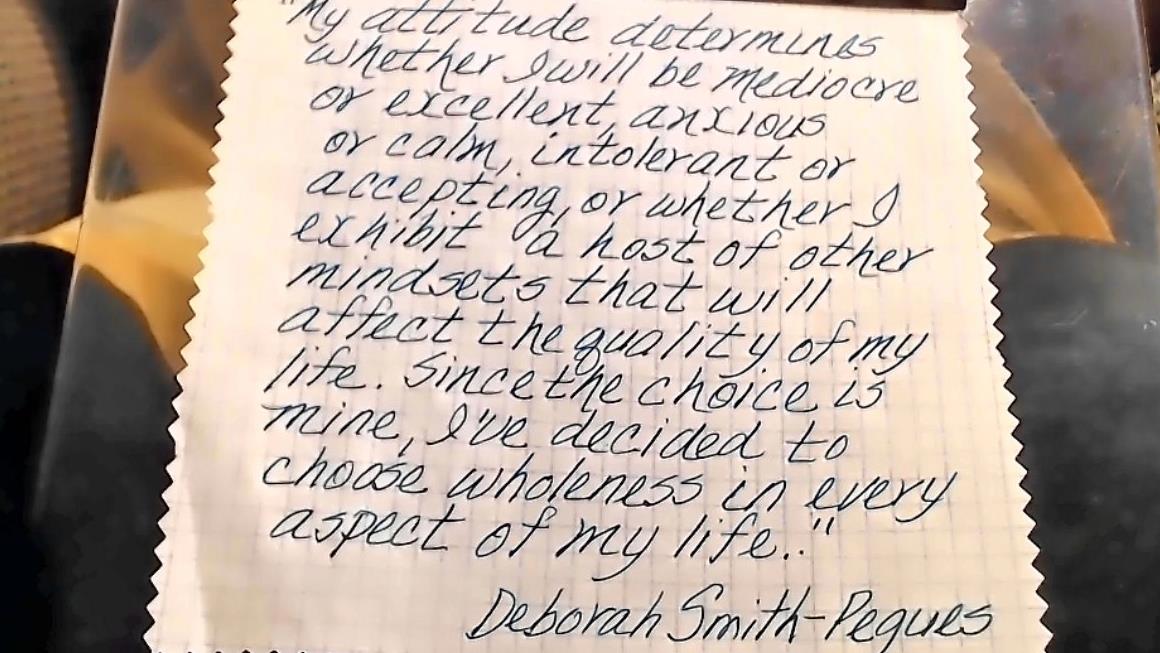 "My attitude determines
whether I will be mediocre
or excellent, anxious
or calm, intolerant or
accepting, or whether I
exhibit a host of other
mindsets that will
affect the quality of my
life. Since the choice is
mine, I've decided to
choose wholeness in every
aspect of my life.."
Deborah Smith-Pegues